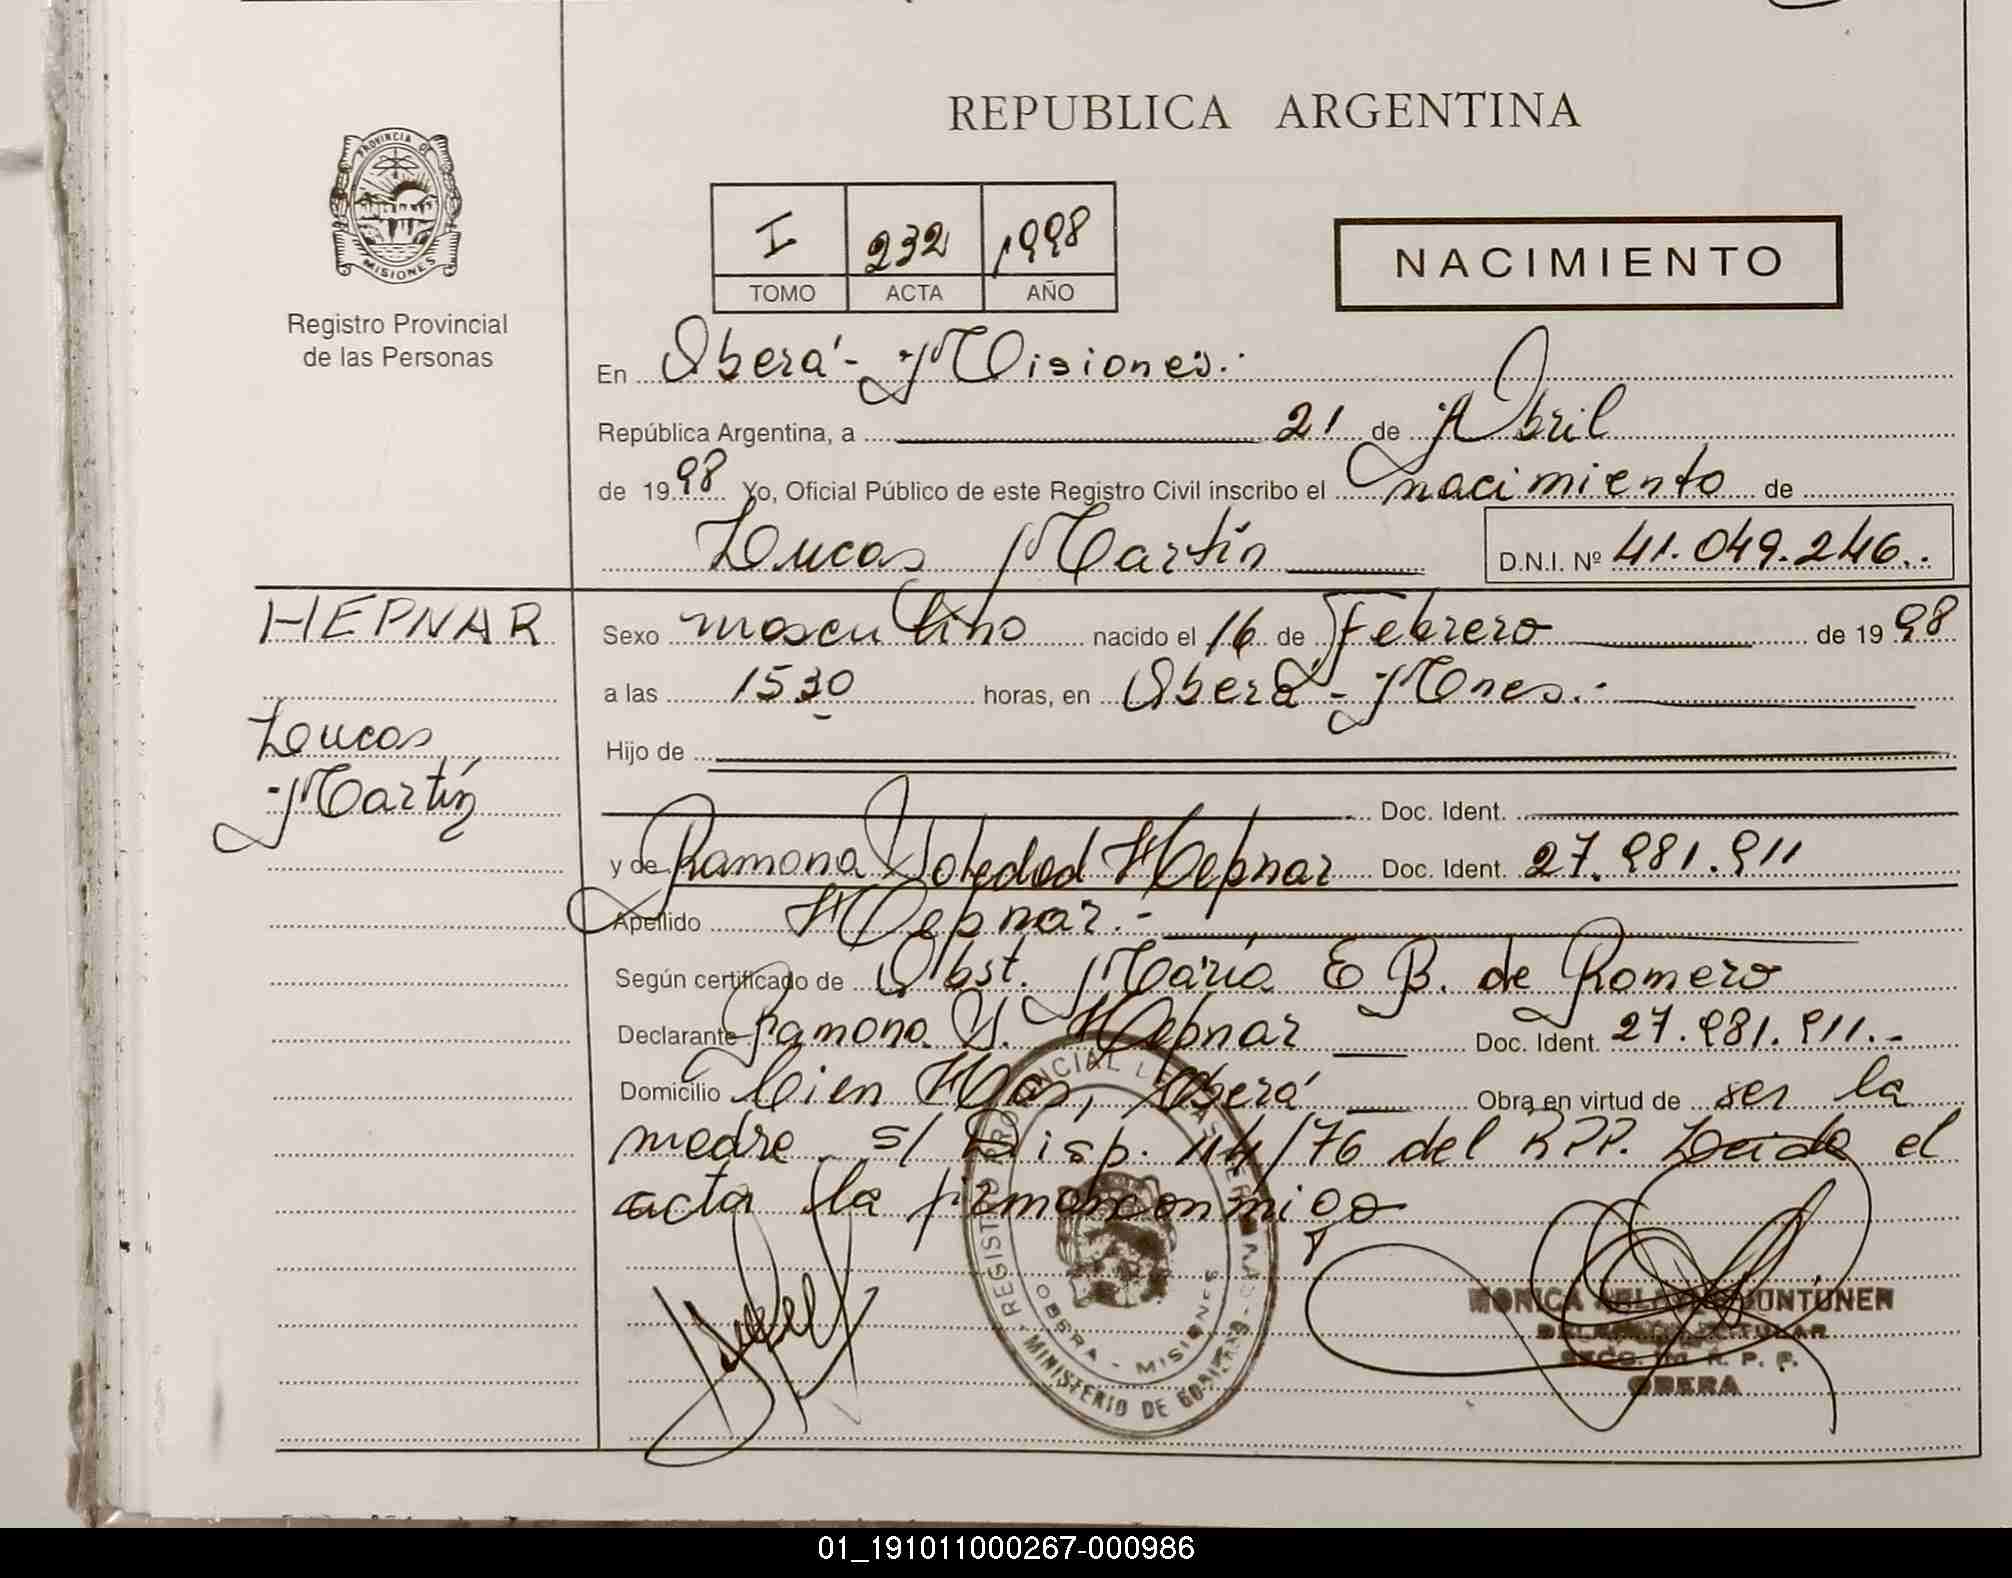 REPUBLICA ARGENTINA
PROVINCIA DE
MISIONES
Registro Provincial
de las Personas
I 232 1998
TOMO ACTA AÑO
NACIMIENTO
En Oberá - Misiones.-
República Argentina, a 21 de Abril
de 1998 Yo, Oficial Público de este Registro Civil inscribo el nacimiento de
Lucas Martín D.N.I. Nº 41.049.246.-
HEPNAR
Lucas
Martín
Sexo masculino nacido el 16 de Febrero de 1998
a las 1530 horas, en Oberá - Mnes.-
Hijo de
Doc. Ident.
y de Ramona Soledad Hepnar Doc. Ident. 27.981.911
Apellido Hepnar.-
Según certificado de Obst. María E B. de Romero
Declarante Ramona S. Hepnar Doc. Ident. 27.981.911.-
Domicilio Cien Has, Oberá Obra en virtud de ser la
madre s/ Disp. 44/76 del RPP. Leida el
acta la firma conmigo
REGISTRO PROVINCIAL DE LAS PERSONAS
OBERA - MISIONES
MINISTERIO DE GOBIERNO
MONICA
DELEGADA TITULAR
R. P. P.
OBERA
01_191011000267-000986